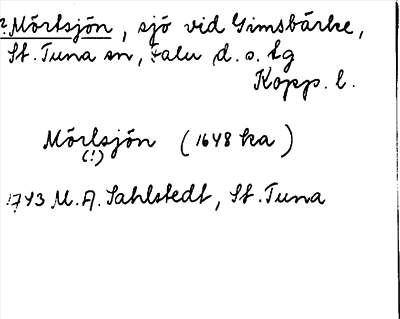 ? Mörtsjön, sjö vid Gimsbärke,
St. Tuna sn, Falu d. s. lg
Kopp. l.
Mörlsjön (1648 ka)
(!)
1743 M. A. Sahlstedt, St. Tuna